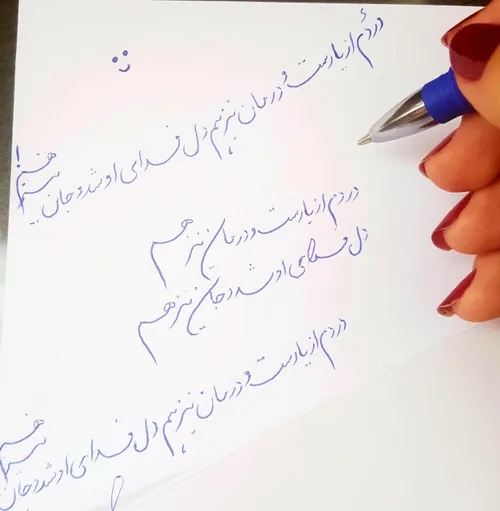 دردم از یارست و درمان نیز هم دل فدای او شد و جان..
نیز هم!
دردم از یارست و درمان نیز هم
دل فدای او شد و جان نیز هم
دردم از یارست و درمان نیز هم دل فدای او شد و جان
نیز هم